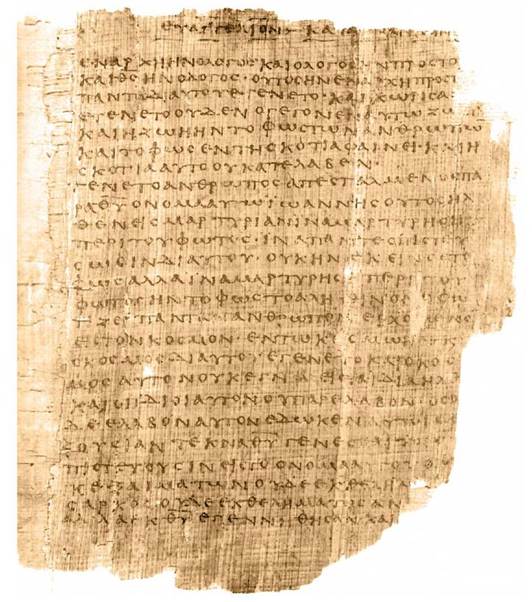 ΕΥΑΓΓΕΛΙΟΝ ΚΑΤΑ
ΕΝΑΡΧΗΗΝΟΛΟΓΟΣΚΑΙΟΛΟΓΟΣΗΝΠΡΟΣΤΟ
ΚΑΙΘΣΗΝΟΛΟΓΟΣ·ΟΥΤΟΣΗΝΕΝΑΡΧΗΠΡΟΣ
ΠΑΝΤΑΔΙΑΥΤΟΥΕΓΕΝΕΤΟ·ΚΑΙΧΩΡΙΣΑΥ
ΕΓΕΝΕΤΟΟΥΔΕΝΟΓΕΓΟΝΕΝΕΝΑΥΤΩΖΩ
ΚΑΙΗΖΩΗΗΝΤΟΦΩΣΤΩΝΑΝΘΡΩΠΩ
ΚΑΙΤΟΦΩΣΕΝΤΗΣΚΟΤΙΑΦΑΙΝΕΙ·ΚΑΙΗ
ΣΚΟΤΙΑΑΥΤΟΟΥΚΑΤΕΛΑΒΕΝ·
ΓΕΝΕΤΟΑΝΘΡΩΠΟΣΑΠΕΣΤΑΛΜΕΝΟΣΠΑ
ΡΑΘΥΟΝΟΜΑΑΥΤΩΙΩΑΝΝΗΣΟΥΤΟΣΗΛ
ΘΕΝΕΙΣΜΑΡΤΥΡΙΑΝΙΝΑΜΑΡΤΥΡΗΣΗ
ΠΕΡΙΤΟΥΦΩΤΟΣ·ΙΝΑΠΑΝΤΕΣΠΙΣΤΕΥ
ΣΩΣΙΝΔΙΑΥΤΟΥ·ΟΥΚΗΝΕΚΕΙΝΟΣΤΟ
ΦΩΣΑΛΛΑΙΝΑΜΑΡΤΥΡΗΣΗΠΕΡΙΤΟΥ
ΦΩΤΟΣ·ΗΝΤΟΦΩΣΤΟΑΛΗΘΙΝΟΝΟΦΩ
ΤΙΖΕΙΠΑΝΤΑΑΝΘΡΩΠΟΝΕΡΧΟΜΕΝΟΝ
ΕΙΣΤΟΝΚΟΣΜΟΝ·ΕΝΤΩΚΟΣΜΩΗΝΚΑΙΟ
ΚΟΣΜΟΣΔΙΑΥΤΟΥΕΓΕΝΕΤΟΚΑΙΟΚΟΣ
ΜΟΣΑΥΤΟΝΟΥΚΕΓΝΩΕΙΣΤΑΙΔΙΑΗΛ
ΚΑΙΟΙΙΔΙΟΙΑΥΤΟΝΟΥΠΑΡΕΛΑΒΟΝ·ΟΣΟΙ
ΔΕΕΛΑΒΟΝΑΥΤΟΝΕΔΩΚΕΝΑΥΤΟΙΣΕ
ΞΟΥΣΙΑΝΤΕΚΝΑΘΥΓΕΝΕΣΘΑΙΤΟΙΣ
ΠΙΣΤΕΥΟΥΣΙΝΕΙΣΤΟΟΝΟΜΑΑΥΤΟΥΟΙΟΥ
ΚΕΞΑΙΜΑΤΩΝΟΥΔΕΕΚΘΕΛΗΜΑ
ΣΑΡΚΟΣΟΥΔΕΕΚΘΕΛΗΜΑΤΟΣΑΝ
ΑΛΛΑΕΚΘΥΕΓΕΝΝΗΘΗΣΑΝΚΑΙ